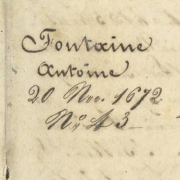 Fontaine
Antoine
20 Nov. 1672
No 43